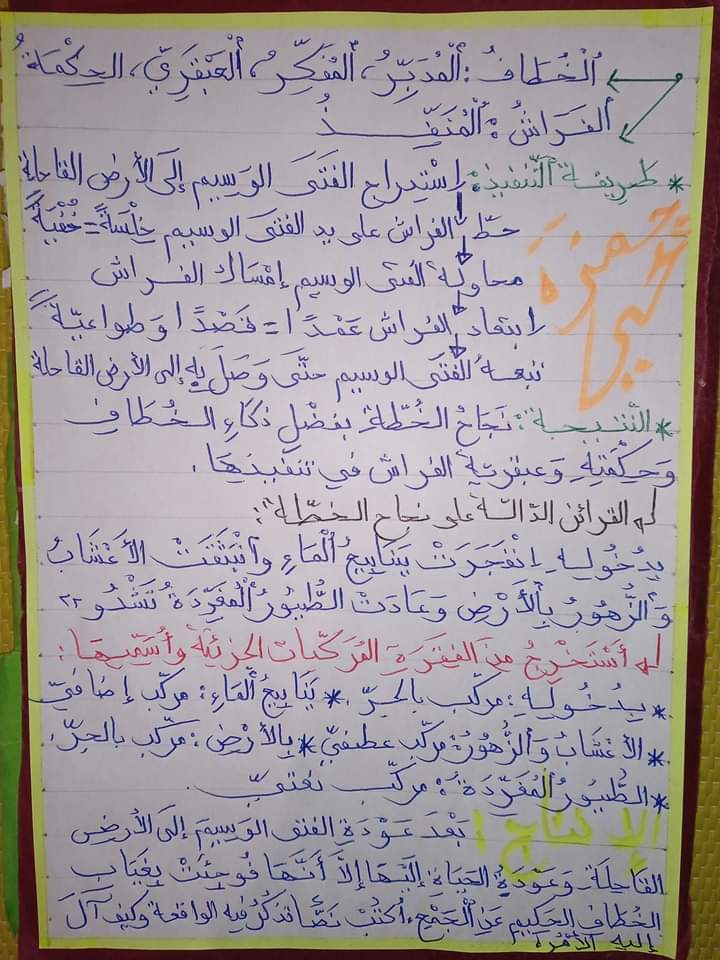 اُلْخُطَافُ: اَلْمُدَبِّرُ، اَلْمُفَكِّرُ، اَلْعَبْقَرِيّ، الحِكْمَةُ
اَلفَرَاشُ: اَلْمُنَفِّذُ
* طريقة التّنفيذ: اِسْتِدراج الفَتَى الوَسِيم إِلَى الأرض القاحلة
حطّ الفراش على يد الفتى الوسيم خِلْسَةً = خُفْيَةً
محاولة الفتى الوسيم إمْسَاك الفراش
ابتعاد الفراش عَمْدًا = قَصْدًا وَطواعيّة
تبعه الفَتَى الوسيم حتَّى وَصَلَ بِهِ إلى الأرض القاحلة
* النّتيجة: نَجَاحُ الخُطّةِ بِفَضْلِ ذكَاءِ الخُطَافِ
وَحِكْمَتِهِ وَعبقريّة الفراش في تنفيذها.
القرائن الدّالة على نجاح الخطّة:
بِدُخُولِهِ اِنْفَجَرَتْ يَنَابِيعُ اُلْمَاءِ وَاُنْبَثَقَتْ الأَعْشَابُ
وَالزُّهُورُ بِالْأَرْضِ وَعَادَتْ الطُّيُورُ اُلْمُغَرِّدَةُ تَشْدُو
أَسْتَخْرِجُ مِنَ الفقرَةِ المُرَكّبات الجزئيّة وأُسَمّيها:
* بِدُخُولِهِ: مركّب بالجرّ. * يَنَابِيعُ الْمَاءِ: مركّب إضافيّ
* الأعْشَابُ وَالزُّهُورُ: مركّب عطفيّ * بِالأَرْضِ: مركّب بالجرّ.
* الطُّيُورُ المُغَرِّدَةُ: مركّب نعتيّ.
الإنتاج: بَعْدَ عَوْدَةِ الفتى الوسيم إلى الأرض
القاحلَة وَعَوْدَةُ الحَيَاة إليْهَا إلاَّ أَنَّهَا فُوجِئَتْ بِغِيَابِ
الخُطَافِ الحَكِيمِ عَنِ الْجَمْعِ، اُكْتُبْ نَصًّا تذكُرُ فيه الواقعة وكيف آلَ
إليه الأَمْرُ.